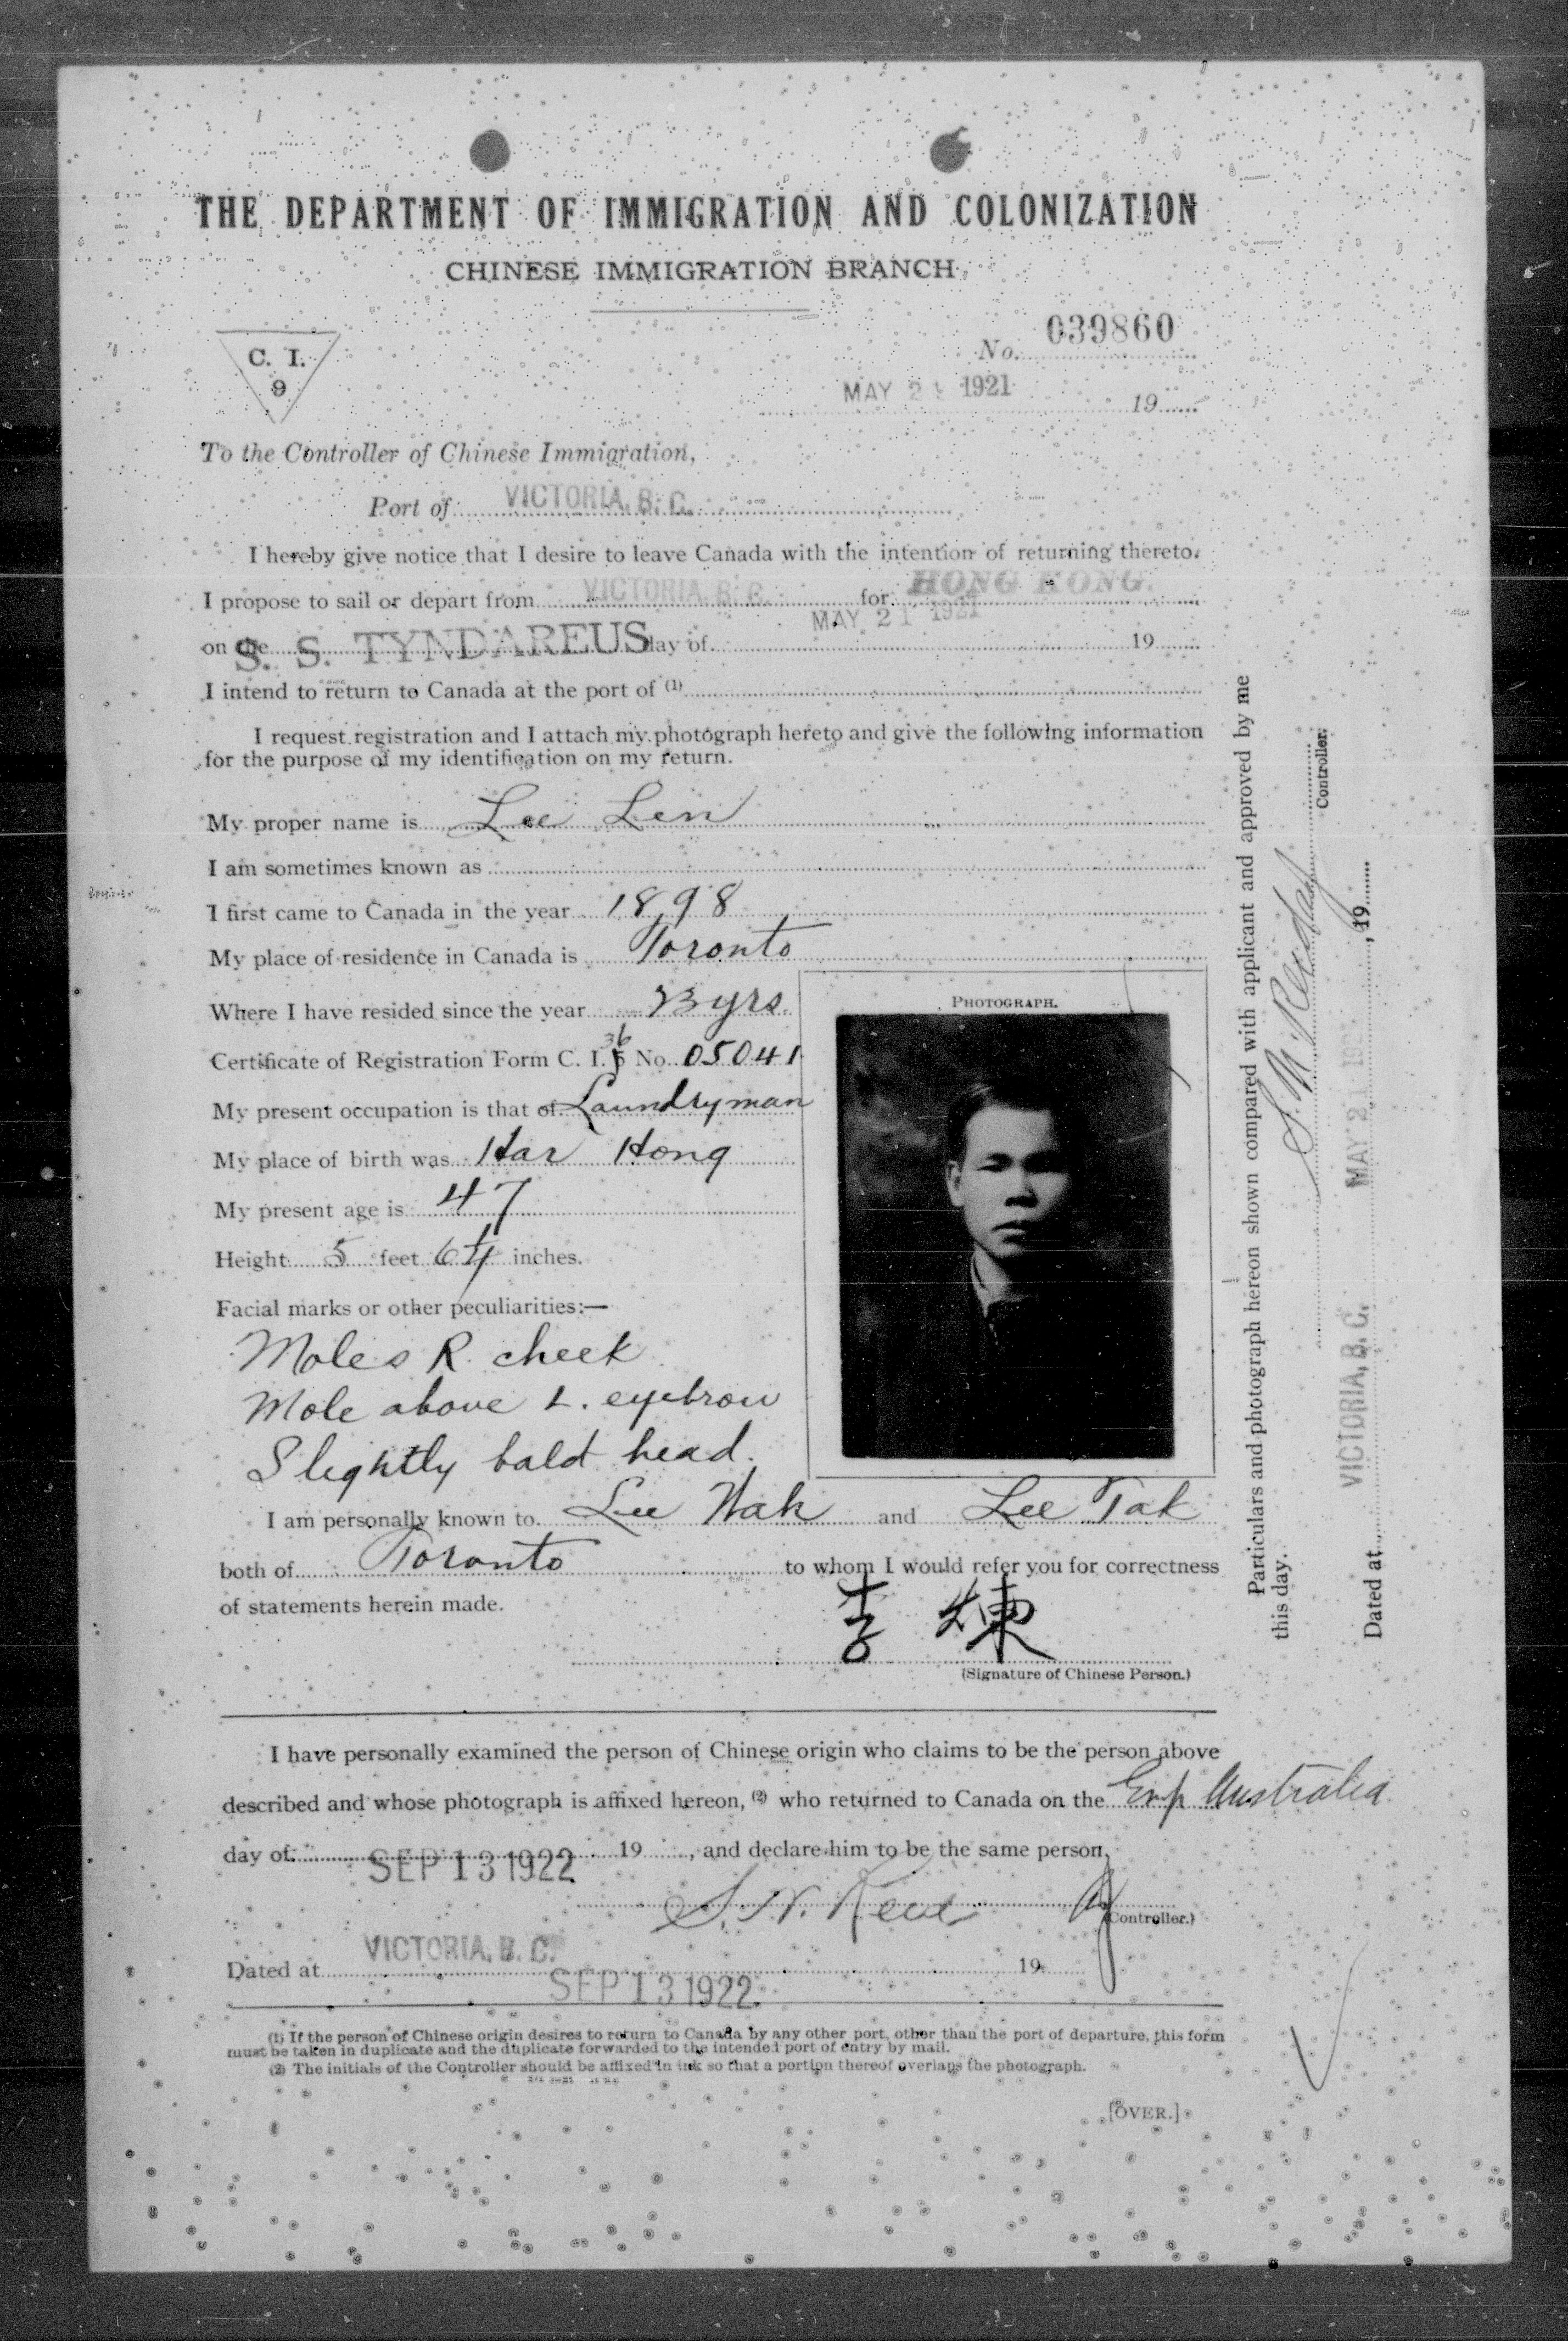 THE DEPARTMENT OF IMMIGRATION AND COLONIZATION
CHINESE IMMIGRATION BRANCH
C. I.
9
No. 039860
MAY 21 1921 19
To the Controller of Chinese Immigration,
Port of VICTORIA, B. C.
I hereby give notice that I desire to leave Canada with the intention of returning thereto.
I propose to sail or depart from VICTORIA, B. C. for HONG KONG.
on the S. S. TYNDAREUS day of MAY 21 1921 19
I intend to return to Canada at the port of (1)
I request registration and I attach my photograph hereto and give the following information
for the purpose of my identification on my return.
My proper name is Lee Len
I am sometimes known as
I first came to Canada in the year 1898
My place of residence in Canada is Toronto
Where I have resided since the year 23 yrs
Certificate of Registration Form C. I. 36 No. 05041
My present occupation is that of Laundryman
My place of birth was Har Hong
My present age is 47
Height 5 feet 6 1/4 inches.
Facial marks or other peculiarities:—
Moles R. cheek
Mole above L. eyebrow
Slightly bald head.
PHOTOGRAPH.
I am personally known to Lee Wah and Lee Tak
both of Toronto to whom I would refer you for correctness
of statements herein made.
李 煉
(Signature of Chinese Person.)
I have personally examined the person of Chinese origin who claims to be the person above
described and whose photograph is affixed hereon, (2) who returned to Canada on the Emp Australia
day of SEP 13 1922 19 , and declare him to be the same person.
Controller.)
Dated at VICTORIA, B. C. SEP 13 1922 19
(1) If the person of Chinese origin desires to return to Canada by any other port, other than the port of departure, this form
must be taken in duplicate and the duplicate forwarded to the intended port of entry by mail.
(2) The initials of the Controller should be affixed in ink so that a portion thereof overlaps the photograph.
[OVER.]
Particulars and photograph hereon shown compared with applicant and approved by me
this day.
Controller.
Dated at VICTORIA, B. C. MAY 21 1921 , 19